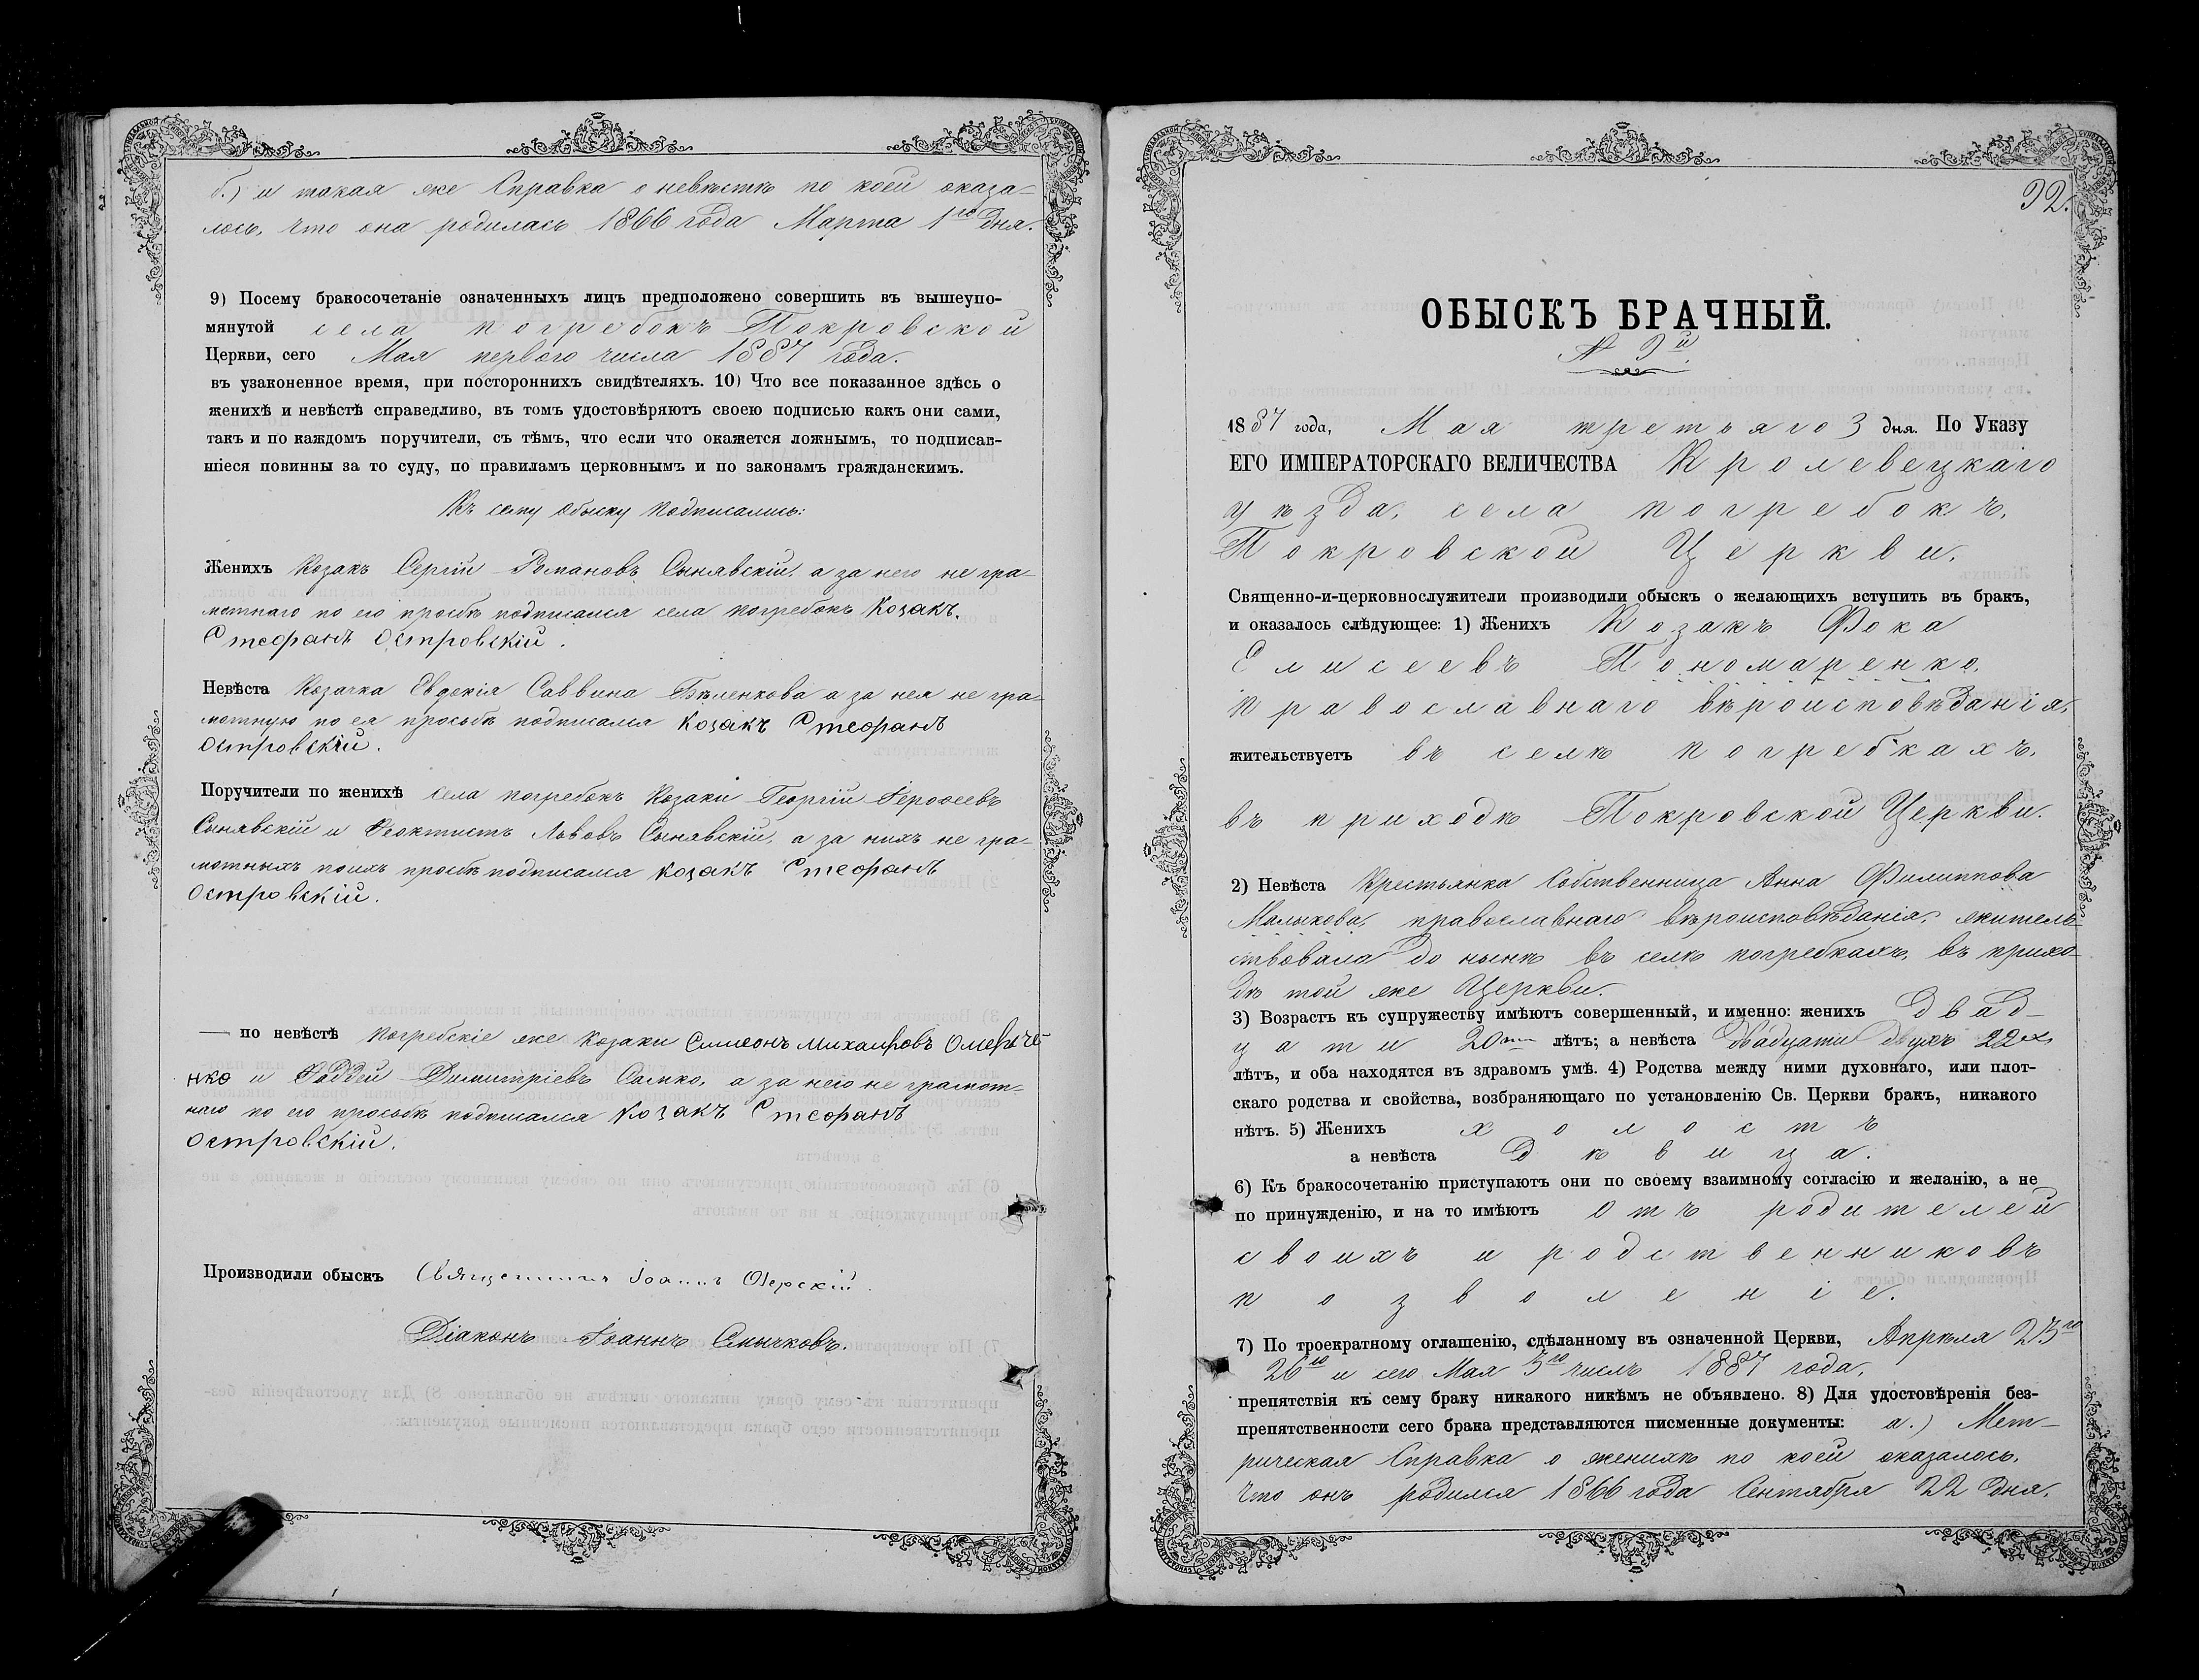 б.) и такая же Справка о невѣстѣ по коей оказа-
лось, что она родилась 1866 года Марта 1го дня.
9) Посему бракосочетаніе означенныхъ лицъ предположено совершить въ вышеупо-
мянутой села погребокъ Покровской
Церкви, сего Мая первого числа 1887 года.
въ узаконенное время, при постороннихъ свидѣтеляхъ. 10) Что все показанное здѣсь о
женихѣ и невѣстѣ справедливо, въ томъ удостовѣряютъ своею подписью какъ они сами,
такъ и по каждомъ поручители, съ тѣмъ, что если что окажется ложнымъ, то подписав-
шіеся повинны за то суду, по правиламъ церковнымъ и по законамъ гражданскимъ.
Къ сему обыску подписались:
Женихъ Козакъ Сергій Романовъ Сынявскій, а за него не гра-
мотнаго по его просьбѣ подписался села погребокъ Козакъ
Стефанъ Островскій.
Невѣста Козачка Евдокія Саввина Бѣленкова а за нея не гра-
мотную по ея просьбѣ подписался козакъ Стефанъ
Островскій.
Поручители по женихѣ села погребокъ Козаки Георгій Іерофеевъ
Сынявскій и Феоктистъ Львовъ Сынявскій, а за нихъ не гра-
мотныхъ по ихъ просьбѣ подписался козакъ Стефанъ
Островскій.
— по невѣстѣ погребскіе же Козаки Симеонъ Михаиловъ
нко и Фаддей Димитріевъ Самко, а за него не грамот-
наго по его просьбѣ подписался козакъ Стефанъ
Островскій.
Производили обыскъ Священникъ Іоаннъ Озерскій.
Діаконъ Іоаннъ Смычковъ.
92.
ОБЫСКЪ БРАЧНЫЙ.
№ 9й.
1887 года, Мая третьяго 3 дня. По Указу
ЕГО ИМПЕРАТОРСКАГО ВЕЛИЧЕСТВА Кролевецкаго
уѣзда, села погребокъ,
Покровской Церкви.
Священно-и-церковнослужители производили обыскъ о желающихъ вступить въ бракъ,
и оказалось слѣдующее: 1) Женихъ Козакъ Фока
Елисеевъ Пономаренко,
православнаго вѣроисповѣданія,
жительствуетъ въ селѣ погребкахъ,
въ приходѣ Покровской Церкви.
2) Невѣста Крестьянка Собственница Анна Филиппова
Малыкова, православнаго вѣроисповѣданія, житель-
ствовала до нынѣ въ селѣ погребкахъ, въ прихо-
дѣ той же Церкви.
3) Возрастъ къ супружеству имѣютъ совершенный, и именно: женихъ двад-
цати 20ти лѣтъ; а невѣста двадцати двухъ 22х
лѣтъ, и оба находятся въ здравомъ умѣ. 4) Родства между ними духовнаго, или плот-
скаго родства и свойства, возбраняющаго по установленію Св. Церкви бракъ, никакого
нѣтъ. 5) Женихъ холостъ
а невѣста дѣвица.
6) Къ бракосочетанію приступаютъ они по своему взаимному согласію и желанію, а не
по принужденію, и на то имѣютъ отъ родителей
своихъ и родственниковъ
позволеніе.
7) По троекратному оглашенію, сдѣланному въ означенной Церкви, Апрѣля 23го
26го и сего Мая 3го числъ 1887 года,
препятствія къ сему браку никакого никѣмъ не объявлено. 8) Для удостовѣренія без-
препятственности сего брака представляются писменные документы: а.) Мет-
рическая Справка о женихѣ по коей оказалось,
что онъ родился 1866 года Сентября 22 дня.